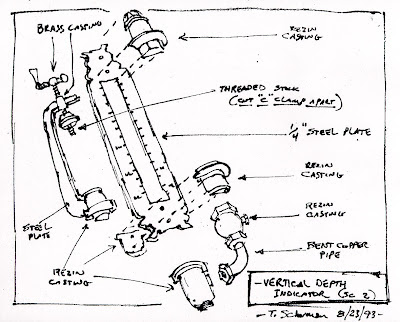 BRASS CASTING
REZIN
CASTING
THREADED STOCK
(CUT "C" CLAMP APART)
1/4" STEEL PLATE
REZIN
CASTING
REZIN
CASTING
BENT COPPER
PIPE
STEEL
PLATE
REZIN
CASTING
-VERTICAL DEPTH
INDICATOR (SC 2)
8/23/93-